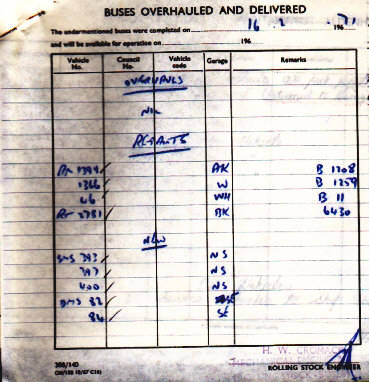 BUSES OVERHAULED AND DELIVERED
The undermentioned buses were completed on 16 . 2 196 71
and will be available for operation on 196
Vehicle No. Council No. Vehicle code Garage Remarks
OVERHAULS
NIL
REPAINTS
RM 1799 AK B 1208
1366 W B 1259
46 WH B 11
RT 2781 BK 6430
NEW
SMS 393 NS
397 NS
400 NS
DMS 82 
84 SF
H. W. CROMACK
ROLLING STOCK ENGINEER
308/140